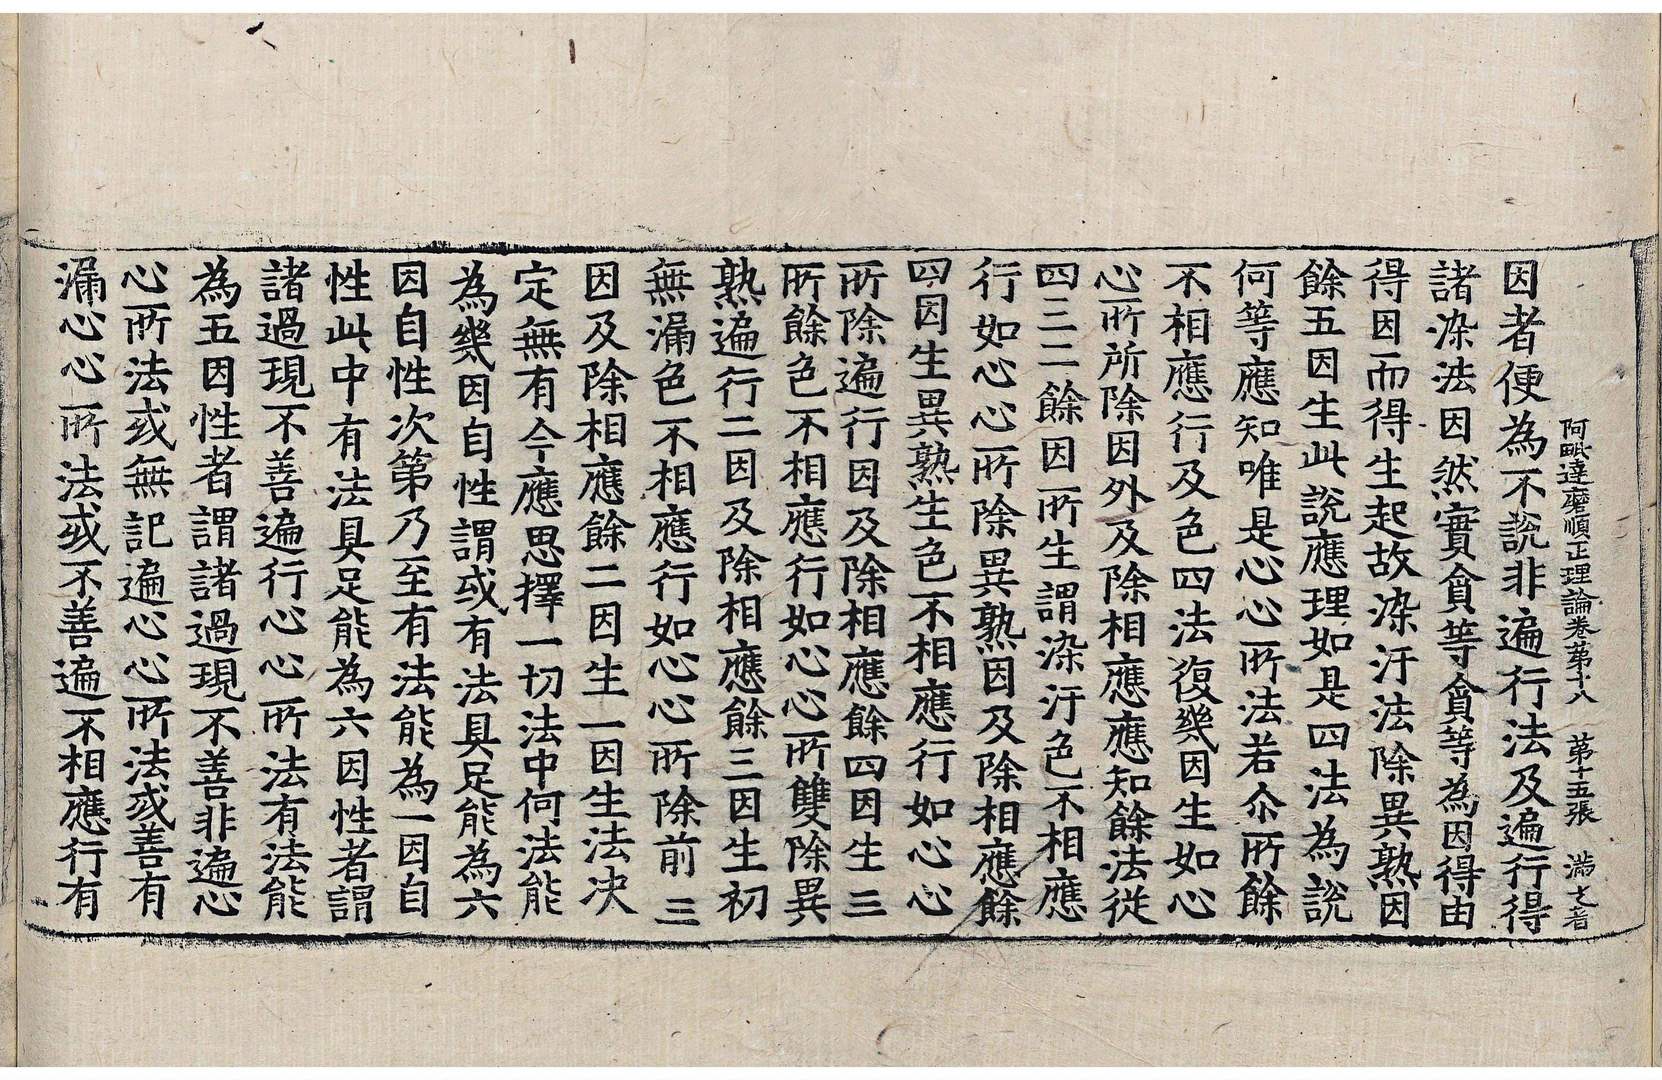 阿毗達磨順正理論卷苐十八　苐十五張　満
因者便為不說非遍行法及遍行得
諸染法因然實貪等貪等為因得由
得因而得生起故染汙法除異熟因
餘五因生此說應理如是四法為說
何等應知唯是心心所法若尒所餘
不相應行及色四法復幾因生如心
心所所除因外及除相應應知餘法從
四三二餘因所生謂染汙色不相應
行如心心所除異熟因及除相應餘
四因生異熟生色不相應行如心心
所除遍行因及除相應餘四因生三
所餘色不相應行如心心所雙除異
熟遍行二因及除相應餘三因生初
無漏色不相應行如心心所除前三
因及除相應餘二因生一因生法决
定無有今應思擇一切法中何法能
為幾因自性謂或有法具足能為六
因自性次第乃至有法能為一因自
性此中有法具足能為六因性者謂
諸過現不善遍行心心所法有法能
為五因性者謂諸過現不善非遍心
心所法或無記遍心心所法或善有
漏心心所法或不善遍不相應行有